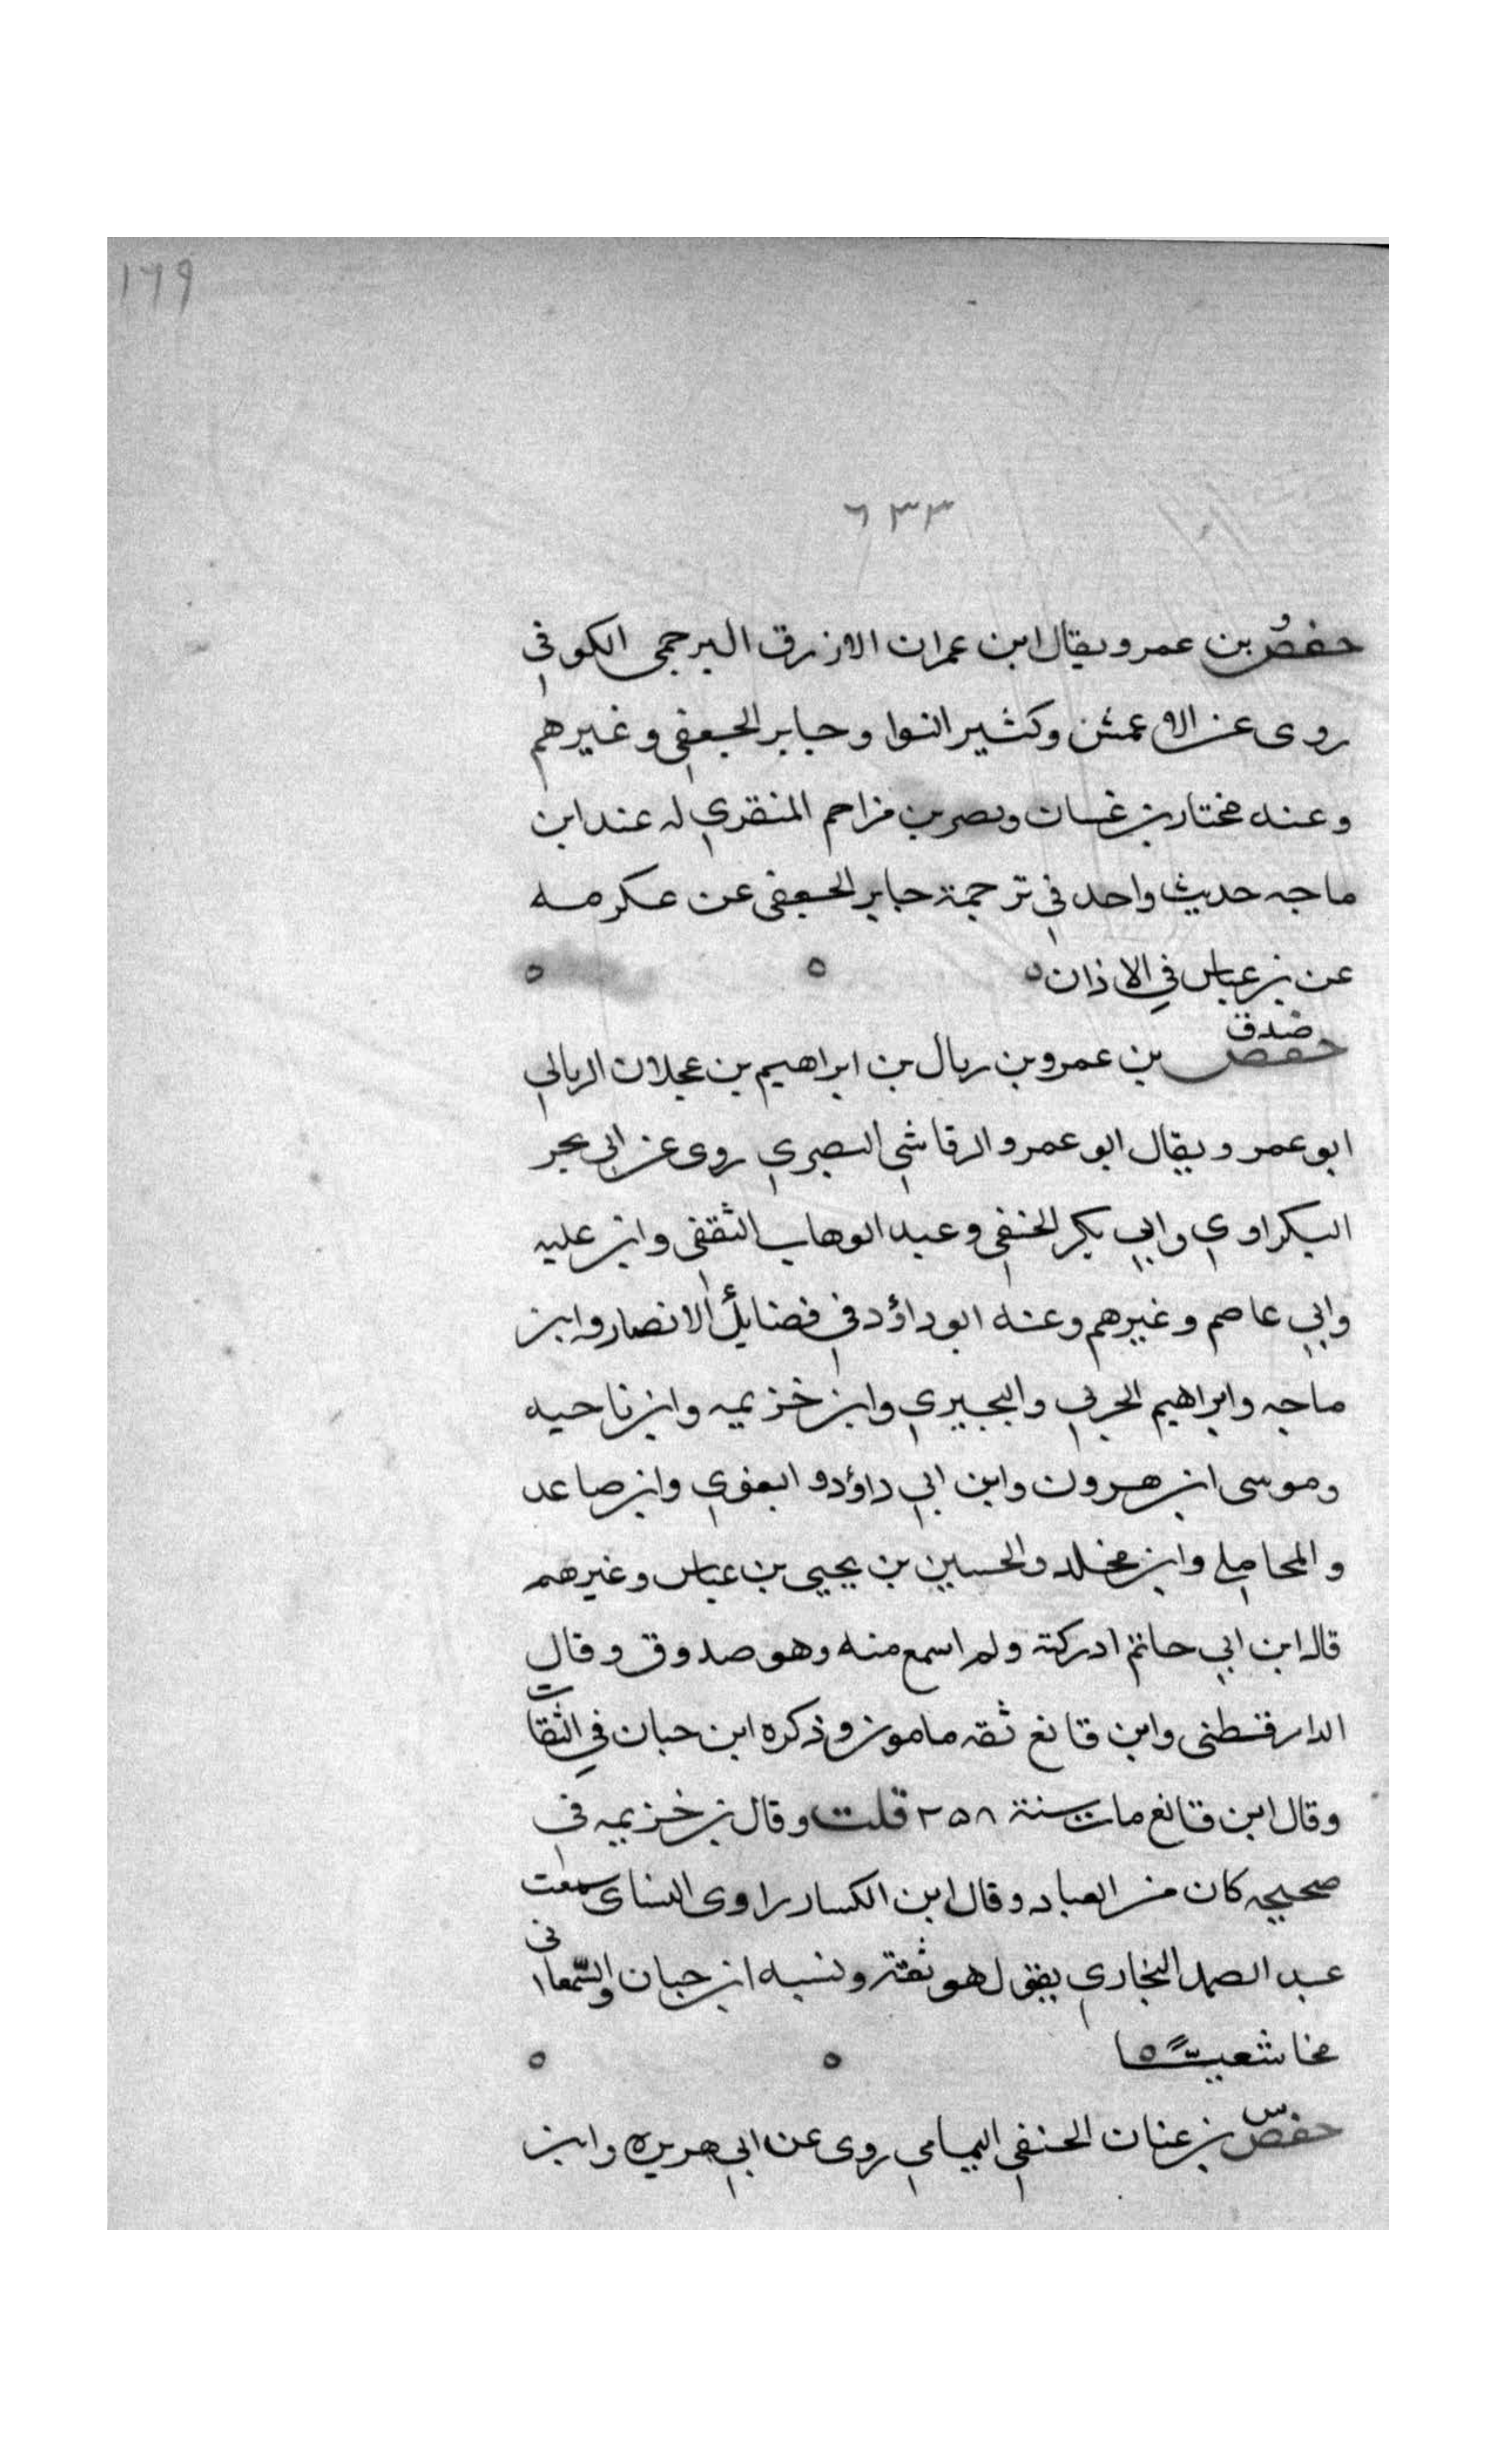 ١٦٩
٦٣٣
حفص بن عمر ويقال ابن عمران الازرق البرجمى الكوفي
روى عن الاعمش وكثير النوا وجابر الجعفي وغيرهم
وعنه مختار بن غسان ونصر بن مزاحم المنقري له عند ابن
ماجه حديث واحد في ترجمة جابر الجعفى عن عكرمه
عن بن عباس في الاذان ٥ ٥ ٥
صدق
حفص بن عمرو بن ربال بن ابراهيم بن عجلان الربالي
ابو عمر ويقال ابو عمرو الرقاشي البصري روى عن ابي بحر
البكراوي وابي بكر الحنفي وعبد الوهاب الثقفى وابن عليه
وابي عاصم وغيرهم وعنه ابو داؤد في فضايل الانصار وابن
ماجه وابراهيم الحربي والبجيري وابن خزيمه وابن ناحيه
وموسى ابن هرون وابن ابي داؤد والبغوي وابن صاعد
والمحاملي وابن مخلد والحسين بن يحيى بن عباس وغيرهم
قال ابن ابي حاتم ادركته ولم اسمع منه وهو صدوق وقال
الدارقطنى وابن قانع ثقه مامون وذكره ابن حبان في الثقات
وقال ابن قانع مات سنة ٢٥٨ قلت وقال بن خزيمه في
صحيحه كان من العباد وقال ابن الكسار راوى النساى سمعت
عبد الصمد البخاري يقول هو ثقة ونسبه ابن حبان والسّمعانى
٥ ٥
حفص بن عنان الحنفي اليمامي روى عن ابي هريره وابن